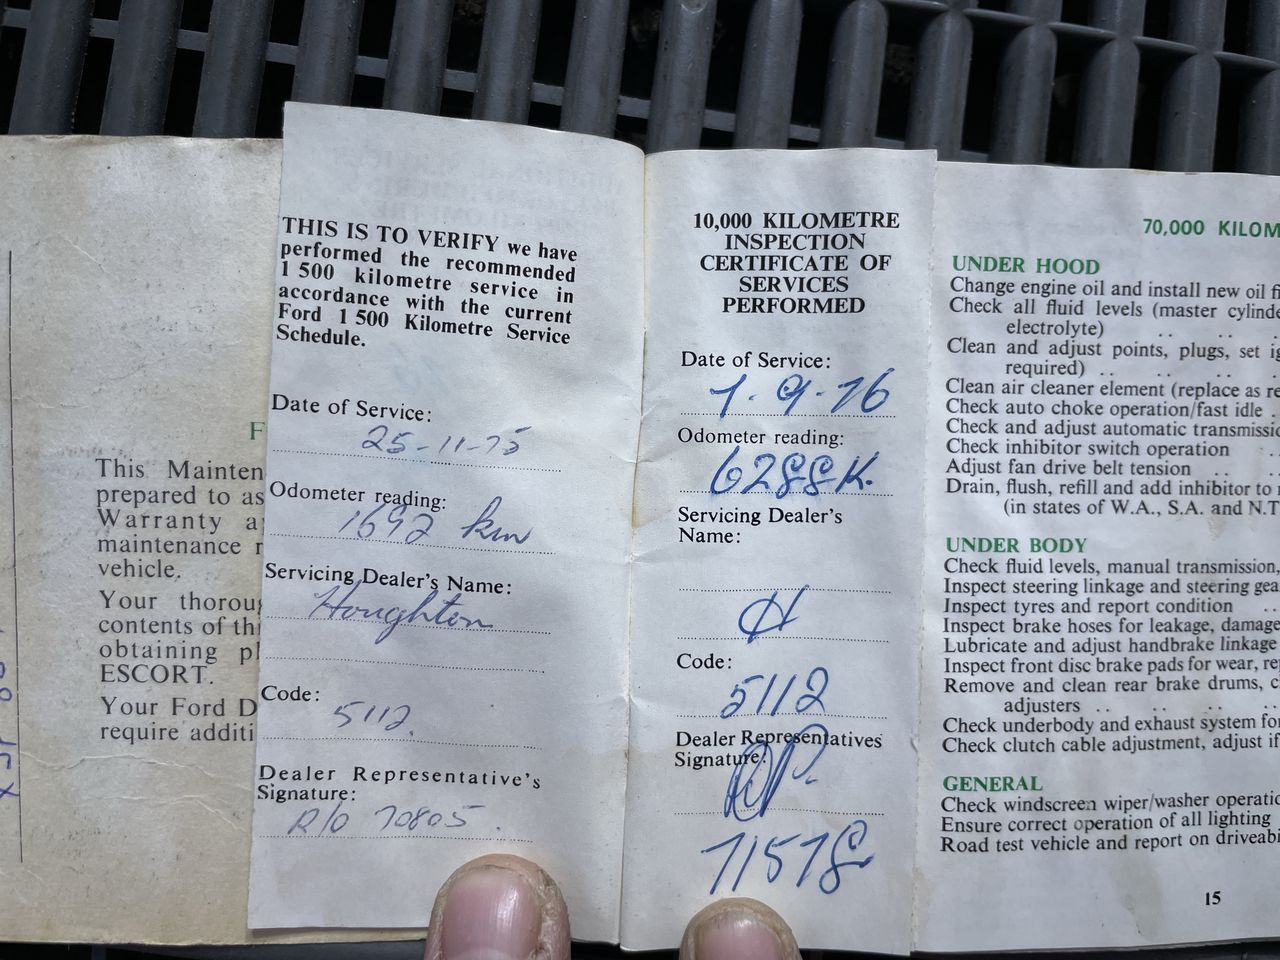 F
This Mainten
prepared to as
Warranty a
maintenance r
vehicle.
Your thoroug
contents of thi
obtaining pl
ESCORT.
Your Ford D
require additi
THIS IS TO VERIFY we have
performed the recommended
1 500 kilometre service in
accordance with the current
Ford 1 500 Kilometre Service
Schedule.
Date of Service:
25-11-75
Odometer reading:
1692 km
Servicing Dealer's Name:
Houghton
Code:
5112.
Dealer Representative's
Signature:
R/O 70805.
10,000 KILOMETRE
INSPECTION
CERTIFICATE OF
SERVICES
PERFORMED
Date of Service:
7.9.76
Odometer reading:
6288K.
Servicing Dealer's
Name:
H
Code:
5112
Dealer Representatives
Signature:
71578
70,000 KILOM
UNDER HOOD
Change engine oil and install new oil fi
Check all fluid levels (master cylinde
electrolyte) .. .. ..
Clean and adjust points, plugs, set ig
required) .. .. .. ..
Clean air cleaner element (replace as re
Check auto choke operation/fast idle .
Check and adjust automatic transmissio
Check inhibitor switch operation ..
Adjust fan drive belt tension .. ..
Drain, flush, refill and add inhibitor to r
(in states of W.A., S.A. and N.T
UNDER BODY
Check fluid levels, manual transmission,
Inspect steering linkage and steering gea
Inspect tyres and report condition ..
Inspect brake hoses for leakage, damage
Lubricate and adjust handbrake linkage
Inspect front disc brake pads for wear, rep
Remove and clean rear brake drums, c
adjusters .. .. .. ..
Check underbody and exhaust system for
Check clutch cable adjustment, adjust if
GENERAL
Check windscreen wiper/washer operatio
Ensure correct operation of all lighting
Road test vehicle and report on driveabi
15